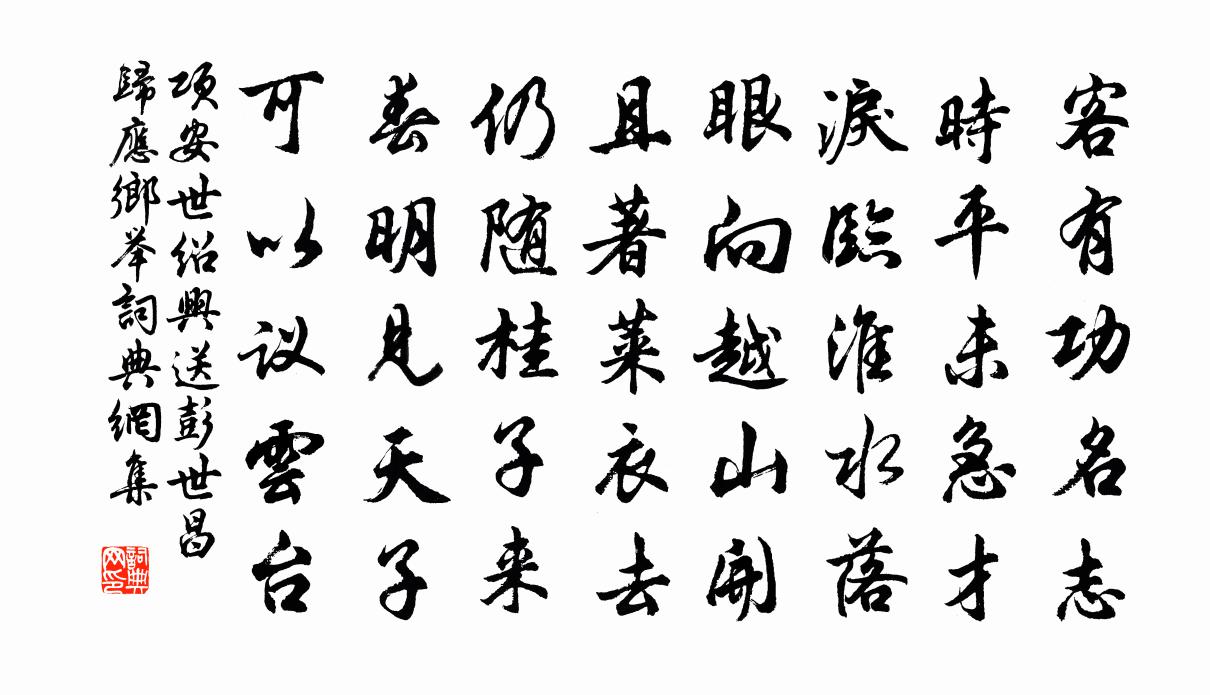 客有功名志
時平未急才
淚臨淮水落
眼向越山開
且著莱衣去
仍随桂子来
春明見天子
可以议雲台
项安世绍興送彭世昌
歸應鄉举詞典網集
詞典网印